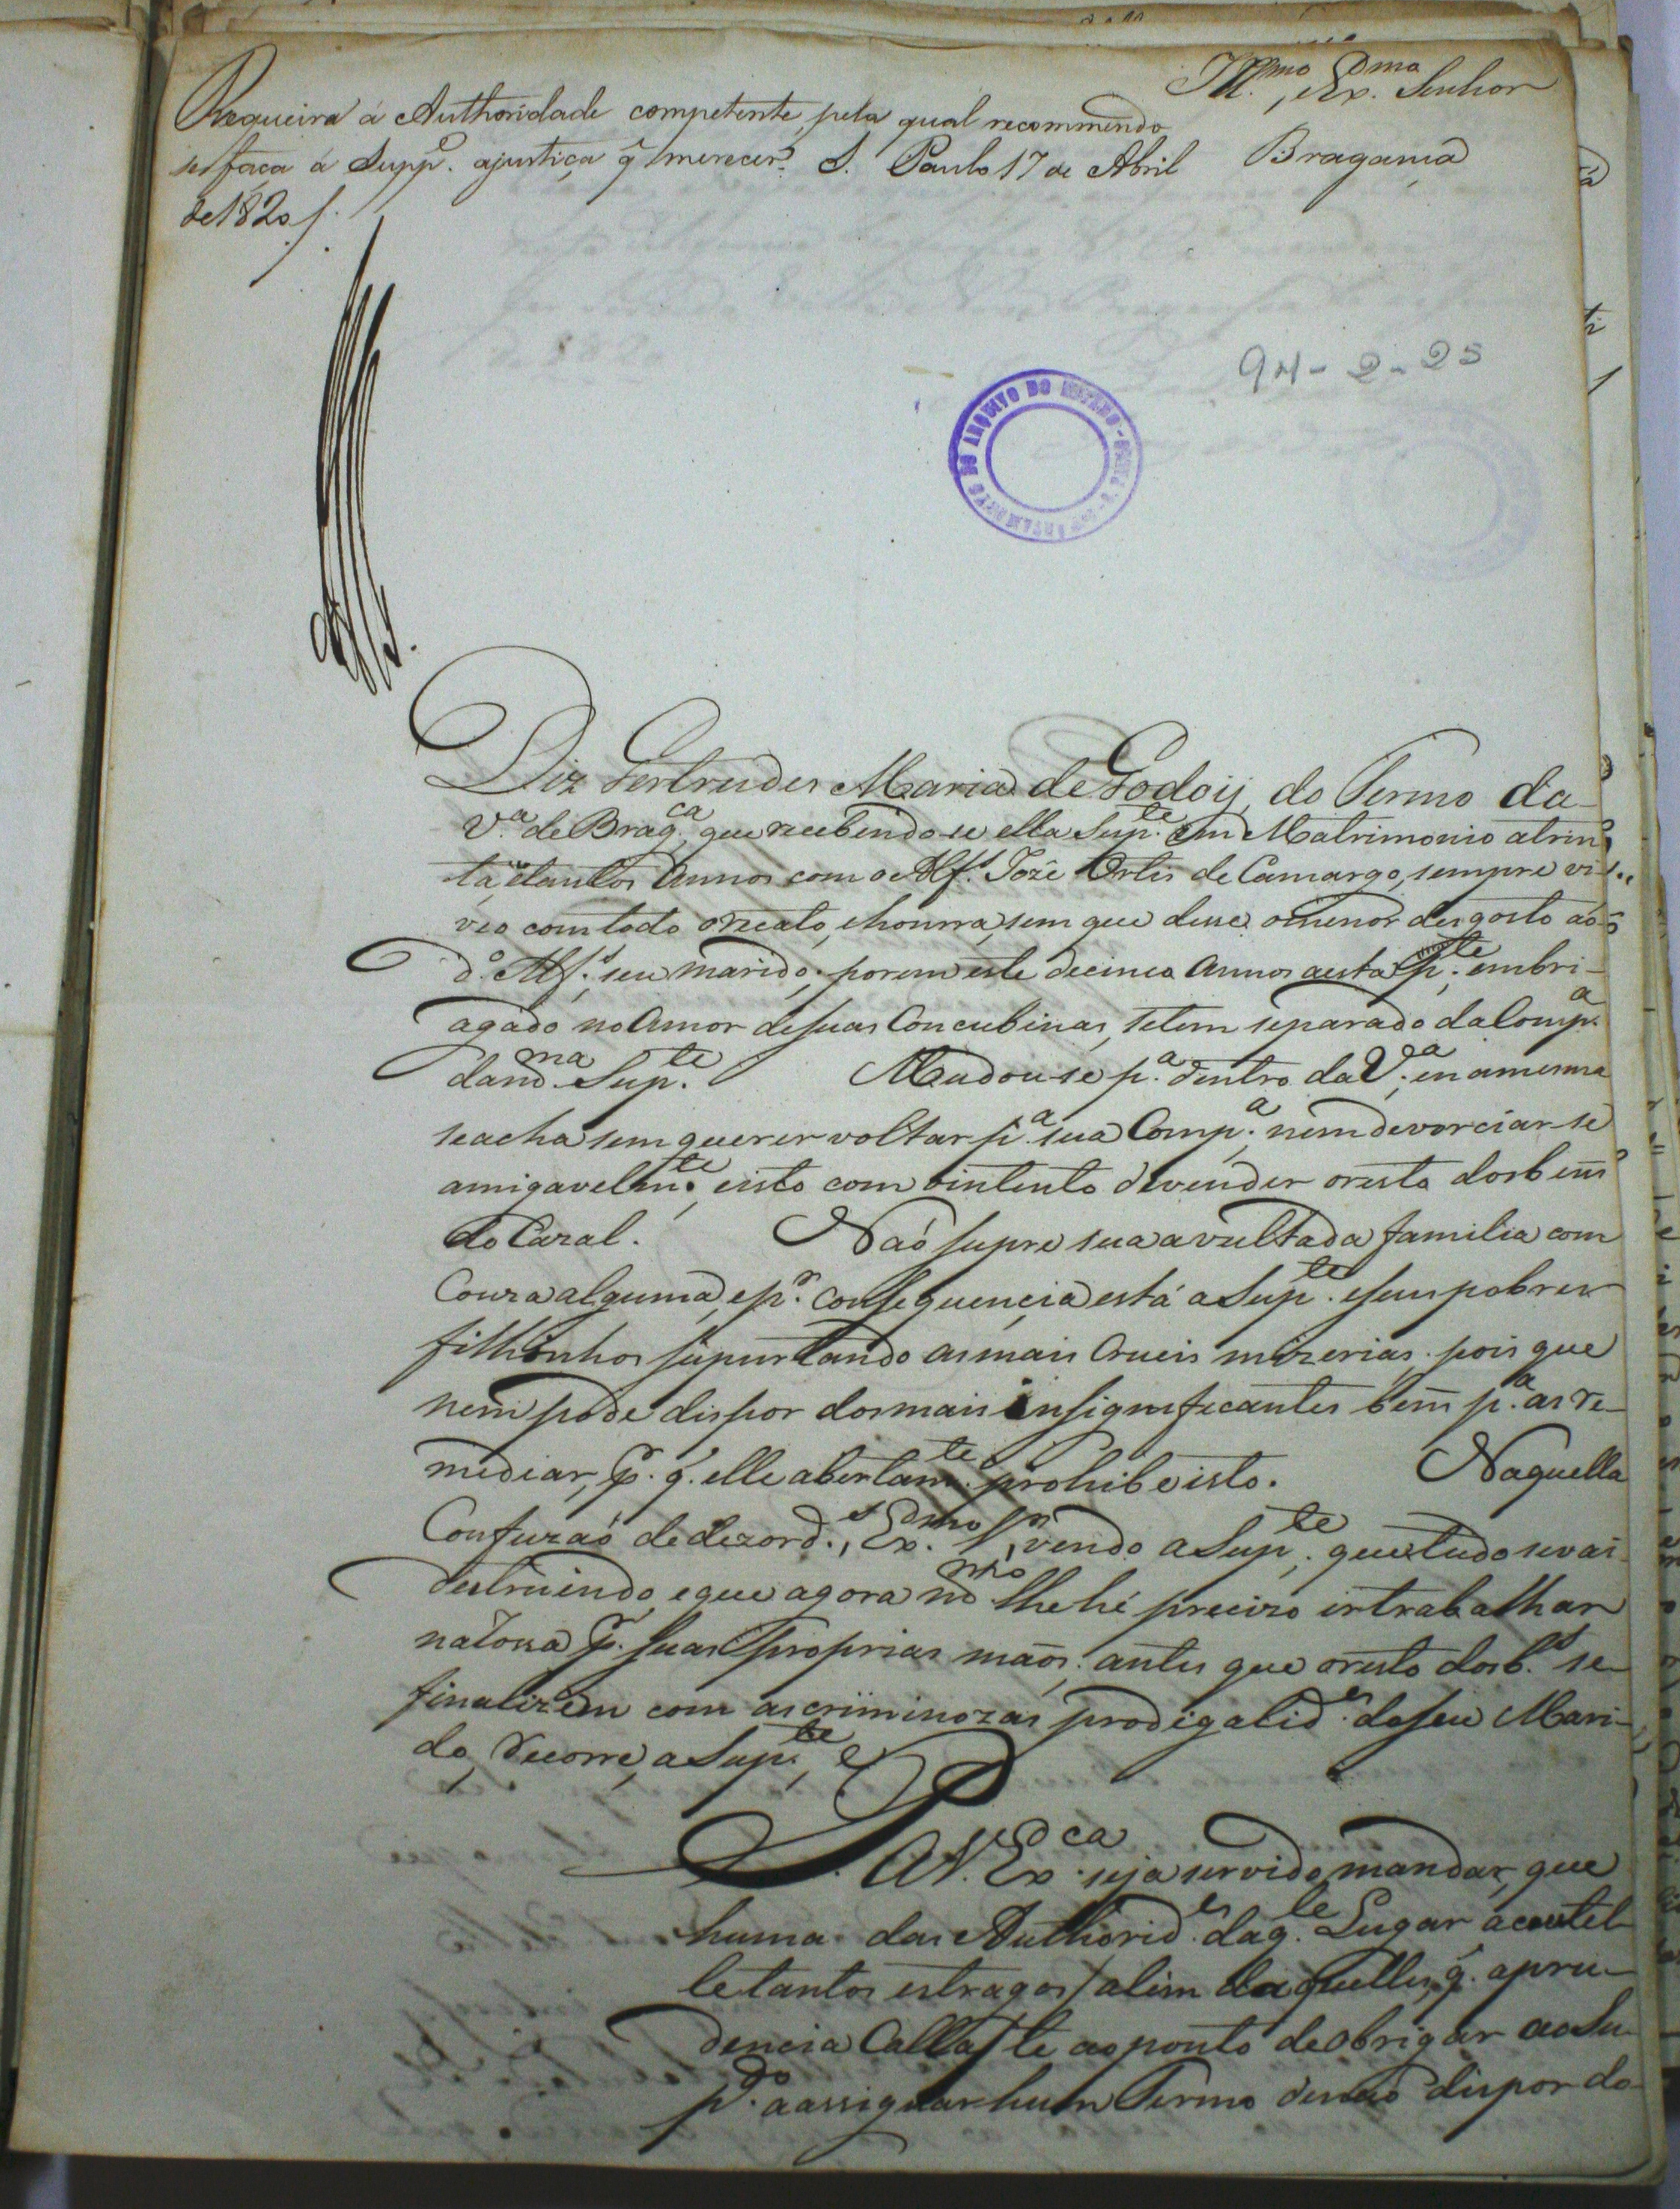 Ill.mo, e Ex.mo Senhor
Requeira á Authoridade competente, pela qual recommendo
se faça á Supp.e ajustiça q̃ merecer. S. Paulo 17 de Abril
de 1820/.
Bragança
94-2-25
DEPARTAMENTO DO ARQUIVO DO ESTADO
Diz Gertrudes Maria de Godoij, do Termo da
V.a de Brag.ca, que recebendo-se ella Sup.te em Matrimonio atrin
ta, etantos Annos com o Alf.s Jozé Ortis de Camargo, sempre vi-
veo comtodo orecato, ehonra, sem que desse omenor desgosto ao
d.o Alf.s, seu marido; porem este decinco Annos aesta p.te, embri-
agado no Amor desuas Concubinas, setem separado da Comp.a
dam.ma Sup.te Mudou-se p.a dentro da V.a, enamesma
seacha sem querer voltar p.a sua Comp.a, nem devorciar-se
amigavelm.te, eisto com ointento devender oresto dosbens
do Cazal. Naó supre sua avultada familia com
Couza alguma, ep.r consequencia está aSup.te eseus pobres
filhinhos supurtando asmais Crueis mizerias, pois que
nem pode dispor dosmais insignificantes bens p.a as re-
mediar, p.r q. elle abertam.te prohibe isto. Naquella
Confuzaó dedezord.s, Ex.mo S.r, vendo aSup.te, quetudo sevai
destruindo, eque agora m.mo lhehé precizo irtrabalhar
naRossa p.r suas proprias maõs; antes que oresto dosb.s se
finalizem com ascriminozas prodigalid.es deseu Mari-
do, recorre, aSup.te, e
P. AV. Ex.ca seja servido mandar, que
huma das Authorid.es daq.le Lugar acautel-
le tantos estragos/alem daquelles, q. apru-
dencia Calla/te aoponto deobrigar aoSu-
p.do aassignar hum Termo denaó dispor do